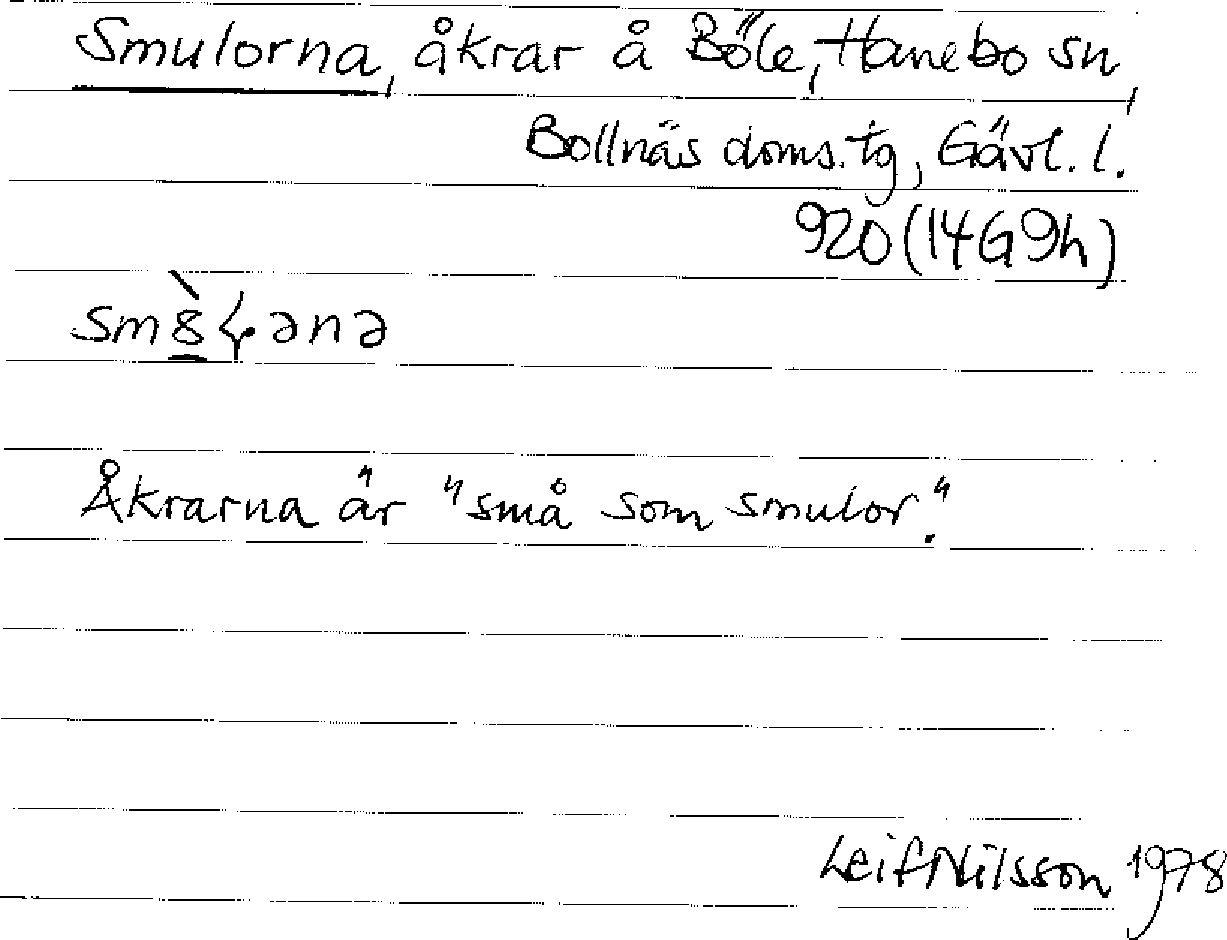 Smulorna, åkrar å Böle, Hanebo sn,
Bollnäs doms. tg, Gävl. l.
920 (14G9h)
Åkrarna är "små som smulor".
Leif Nilsson 1978